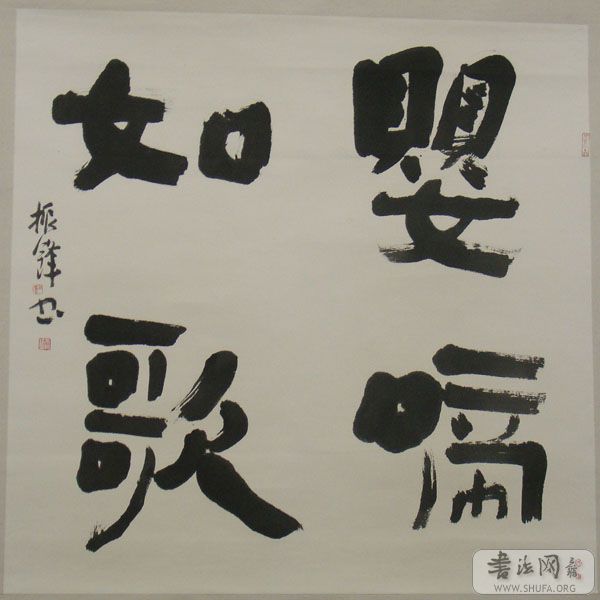 嬰啼
如歌
振鋒书
書法网
WWW.SHUFA.ORG